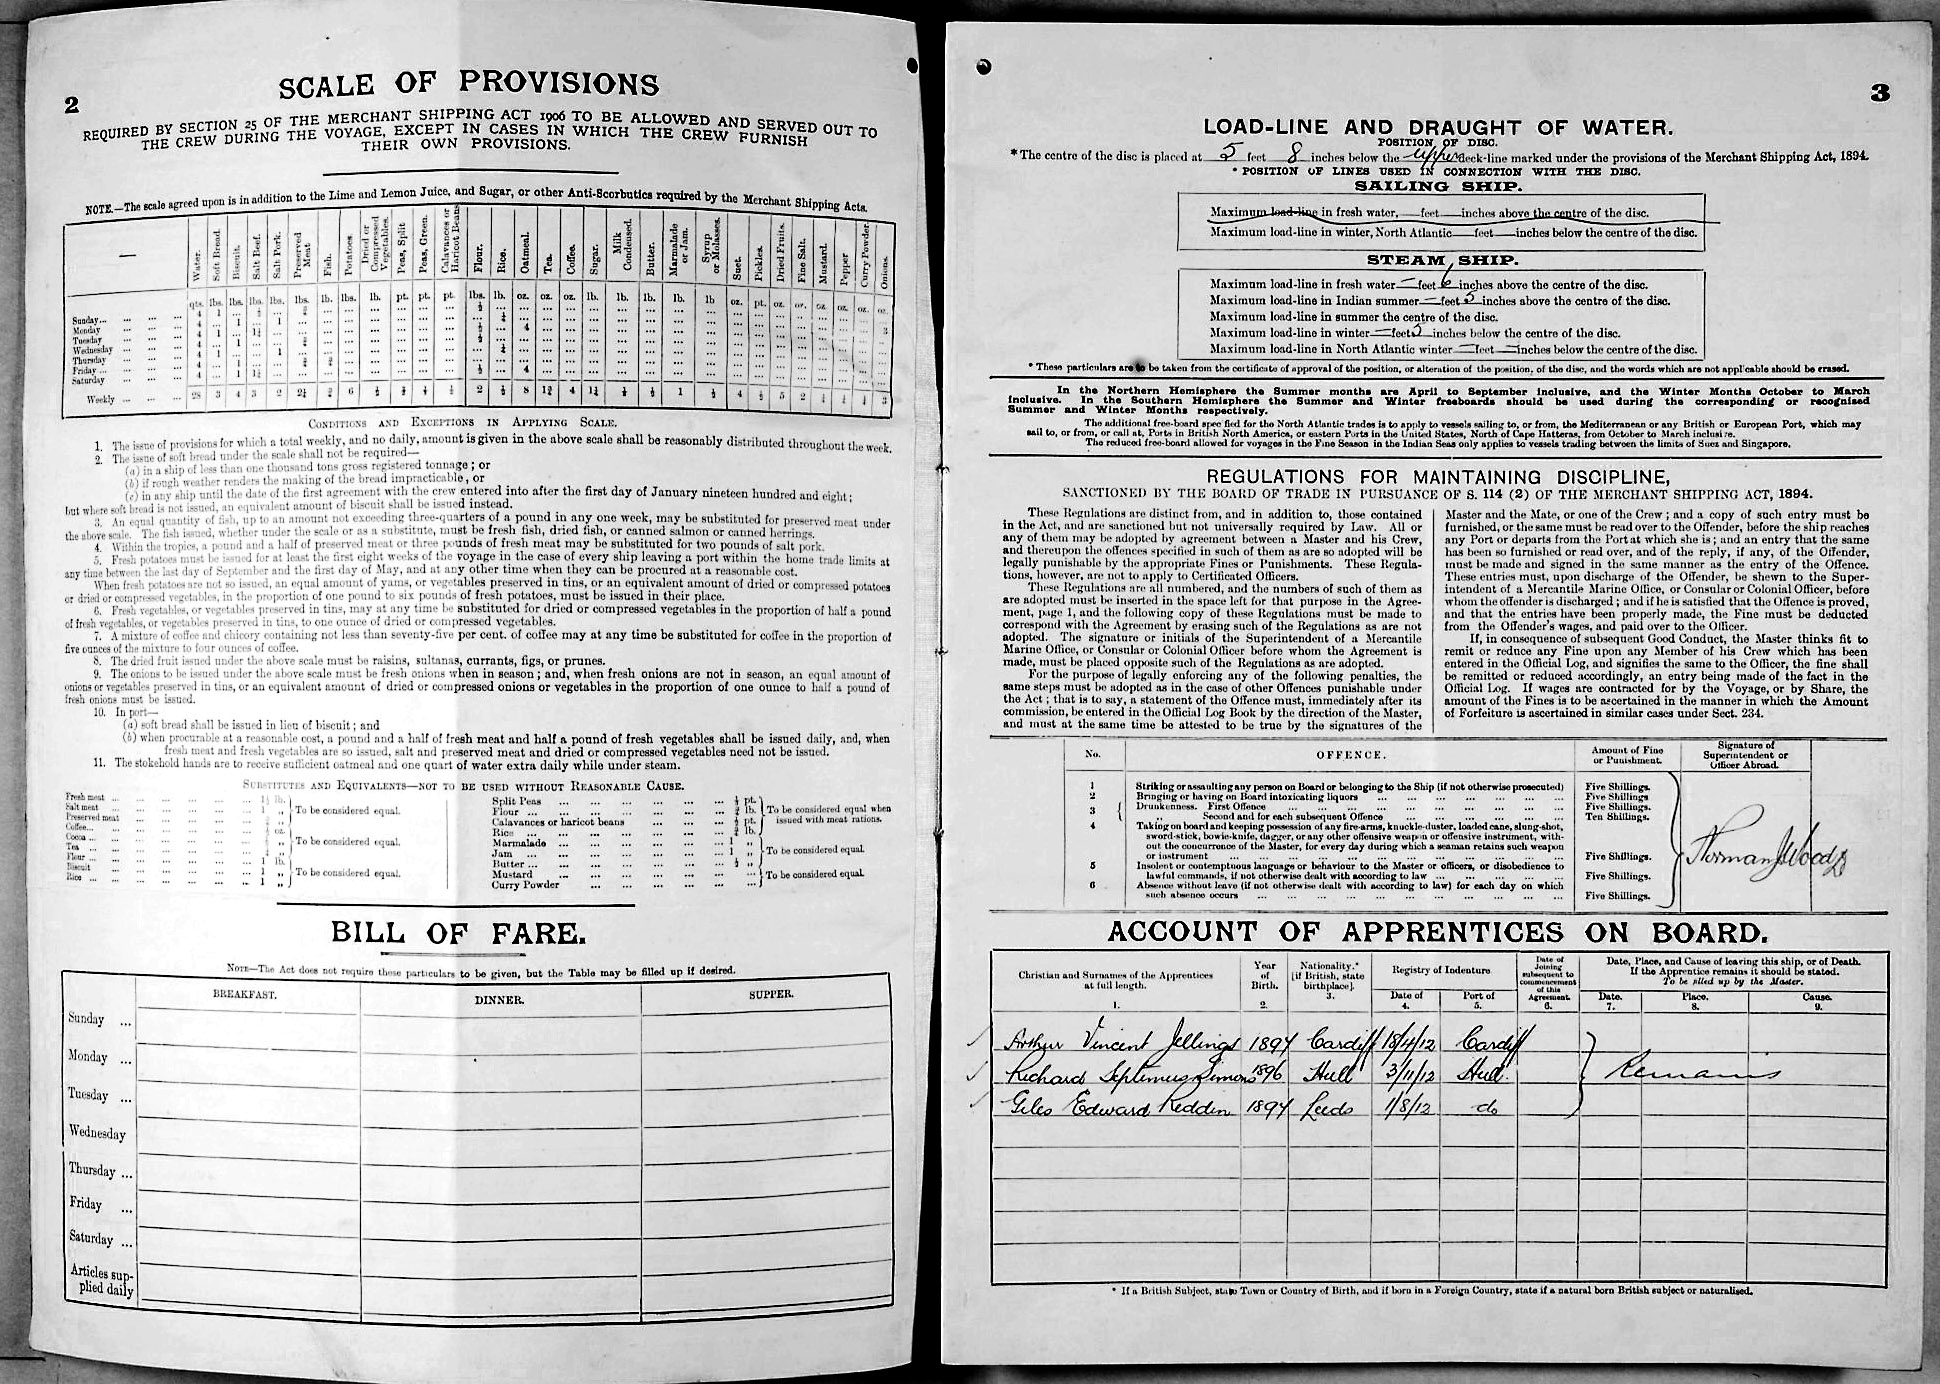 2
SCALE OF PROVISIONS
REQUIRED BY SECTION 25 OF THE MERCHANT SHIPPING ACT 1906 TO BE ALLOWED AND SERVED OUT TO
THE CREW DURING THE VOYAGE, EXCEPT IN CASES IN WHICH THE CREW FURNISH
THEIR OWN PROVISIONS.
NOTE.—The scale agreed upon is in addition to the Lime and Lemon Juice, and Sugar, or other Anti-Scorbutics required by the Merchant Shipping Acts.
— Water. Soft Bread. Biscuit. Salt Beef. Salt Pork. Preserved Meat Fish. Potatoes. Dried or Compressed Vegetables. Peas, Split Peas, Green. Calavances or Haricot Beans Flour. Rice. Oatmeal. Tea. Coffee. Sugar. Milk Condensed. Butter. Marmalade or Jam. Syrup or Molasses. Suet. Pickles. Dried Fruits. Fine Salt. Mustard. Pepper Curry Powder. Onions.
qts. lbs. lbs. lbs. lbs. lbs. lb. lbs. lb. pt. pt. pt. lbs. lb. oz. oz. oz. lb. lb. lb. lb. lb oz. pt. oz. oz. oz. oz. oz. oz.
Sunday... ... ...
Monday ... ... ...
Tuesday ... ... ...
Wednesday ... ... ...
Thursday ... ... ...
Friday ... ... ...
Saturday ... ... ...
Weekly ... ... ... 28 3 4 3 2 2¼ ¾ 6 ½
CONDITIONS AND EXCEPTIONS IN APPLYING SCALE.
1. The issue of provisions for which a total weekly, and no daily, amount is given in the above scale shall be reasonably distributed throughout the week.
2. The issue of soft bread under the scale shall not be required—
(a) in a ship of less than one thousand tons gross registered tonnage; or
(b) if rough weather renders the making of the bread impracticable, or
(c) in any ship until the date of the first agreement with the crew entered into after the first day of January nineteen hundred and eight;
but where soft bread is not issued, an equivalent amount of biscuit shall be issued instead.
3. An equal quantity of fish, up to an amount not exceeding three-quarters of a pound in any one week, may be substituted for preserved meat under
the above scale. The fish issued, whether under the scale or as a substitute, must be fresh fish, dried fish, or canned salmon or canned herrings.
4. Within the tropics, a pound and a half of preserved meat or three pounds of fresh meat may be substituted for two pounds of salt pork.
5. Fresh potatoes must be issued for at least the first eight weeks of the voyage in the case of every ship leaving a port within the home trade limits at
any time between the last day of September and the first day of May, and at any other time when they can be procured at a reasonable cost.
When fresh potatoes are not so issued, an equal amount of yams, or vegetables preserved in tins, or an equivalent amount of dried or compressed potatoes
or dried or compressed vegetables, in the proportion of one pound to six pounds of fresh potatoes, must be issued in their place.
6. Fresh vegetables, or vegetables preserved in tins, may at any time be substituted for dried or compressed vegetables in the proportion of half a pound
of fresh vegetables, or vegetables preserved in tins, to one ounce of dried or compressed vegetables.
7. A mixture of coffee and chicory containing not less than seventy-five per cent. of coffee may at any time be substituted for coffee in the proportion of
five ounces of the mixture to four ounces of coffee.
8. The dried fruit issued under the above scale must be raisins, sultanas, currants, figs, or prunes.
9. The onions to be issued under the above scale must be fresh onions when in season; and, when fresh onions are not in season, an equal amount of
onions or vegetables preserved in tins, or an equivalent amount of dried or compressed onions or vegetables in the proportion of one ounce to half a pound of
fresh onions must be issued.
10. In port—
(a) soft bread shall be issued in lieu of biscuit; and
(b) when procurable at a reasonable cost, a pound and a half of fresh meat and half a pound of fresh vegetables shall be issued daily, and, when
fresh meat and fresh vegetables are so issued, salt and preserved meat and dried or compressed vegetables need not be issued.
11. The stokehold hands are to receive sufficient oatmeal and one quart of water extra daily while under steam.
SUBSTITUTES AND EQUIVALENTS—NOT TO BE USED WITHOUT REASONABLE CAUSE.
Fresh meat ... ... ... ... ... 1½ lb.
Salt meat ... ... ... ... ... 1 „ To be considered equal.
Preserved meat ... ... ... ... ...
Coffee... ... ... ... ... ... oz.
Cocoa ... ... ... ... ... ... „ To be considered equal.
Tea ... ... ... ... ... ... „
Flour ... ... ... ... ... ... 1 lb.
Biscuit ... ... ... ... ... 1 „ To be considered equal.
Rice ... ... ... ... ... ... 1 „
Split Peas ... ... ... ... ... ... pt.
Flour ... ... ... ... ... ... lb. To be considered equal when
Calavances or haricot beans ... ... ... pt. issued with meat rations.
Rice ... ... ... ... ... ... lb.
Marmalade ... ... ... ... ... 1 „
Jam ... ... ... ... ... ... 1 „ To be considered equal.
Butter ... ... ... ... ... ... ½ „
Mustard ... ... ... ... ... ... To be considered equal.
Curry Powder ... ... ... ... ...
BILL OF FARE.
NOTE—The Act does not require these particulars to be given, but the Table may be filled up if desired.
BREAKFAST. DINNER. SUPPER.
Sunday ...
Monday ...
Tuesday ...
Wednesday
Thursday ...
Friday ...
Saturday ...
Articles sup-
plied daily
3
LOAD-LINE AND DRAUGHT OF WATER.
POSITION OF DISC.
*The centre of the disc is placed at 5 feet 8 inches below the upper deck-line marked under the provisions of the Merchant Shipping Act, 1894.
* POSITION OF LINES USED IN CONNECTION WITH THE DISC.
SAILING SHIP.
Maximum load-line in fresh water, feet inches above the centre of the disc.
Maximum load-line in winter, North Atlantic feet inches below the centre of the disc.
STEAM SHIP.
Maximum load-line in fresh water — feet 6 inches above the centre of the disc.
Maximum load-line in Indian summer — feet 5 inches above the centre of the disc.
Maximum load-line in summer the centre of the disc.
Maximum load-line in winter — feet 5 inches below the centre of the disc.
Maximum load-line in North Atlantic winter — feet — inches below the centre of the disc.
* These particulars are to be taken from the certificate of approval of the position, or alteration of the position, of the disc, and the words which are not applicable should be erased.
In the Northern Hemisphere the Summer months are April to September inclusive, and the Winter Months October to March
inclusive. In the Southern Hemisphere the Summer and Winter freeboards should be used during the corresponding or recognised
Summer and Winter Months respectively.
The additional free-board specified for the North Atlantic trades is to apply to vessels sailing to, or from, the Mediterranean or any British or European Port, which may
sail to, or from, or call at, Ports in British North America, or eastern Ports in the United States, North of Cape Hatteras, from October to March inclusive.
The reduced free-board allowed for voyages in the Fine Season in the Indian Seas only applies to vessels trading between the limits of Suez and Singapore.
REGULATIONS FOR MAINTAINING DISCIPLINE,
SANCTIONED BY THE BOARD OF TRADE IN PURSUANCE OF S. 114 (2) OF THE MERCHANT SHIPPING ACT, 1894.
These Regulations are distinct from, and in addition to, those contained
in the Act, and are sanctioned but not universally required by Law. All or
any of them may be adopted by agreement between a Master and his Crew,
and thereupon the offences specified in such of them as are so adopted will be
legally punishable by the appropriate Fines or Punishments. These Regula-
tions, however, are not to apply to Certificated Officers.
These Regulations are all numbered, and the numbers of such of them as
are adopted must be inserted in the space left for that purpose in the Agree-
ment, page 1, and the following copy of these Regulations must be made to
correspond with the Agreement by erasing such of the Regulations as are not
adopted. The signature or initials of the Superintendent of a Mercantile
Marine Office, or Consular or Colonial Officer before whom the Agreement is
made, must be placed opposite such of the Regulations as are adopted.
For the purpose of legally enforcing any of the following penalties, the
same steps must be adopted as in the case of other Offences punishable under
the Act; that is to say, a statement of the Offence must, immediately after its
commission, be entered in the Official Log Book by the direction of the Master,
and must at the same time be attested to be true by the signatures of the
Master and the Mate, or one of the Crew; and a copy of such entry must be
furnished, or the same must be read over to the Offender, before the ship reaches
any Port or departs from the Port at which she is; and an entry that the same
has been so furnished or read over, and of the reply, if any, of the Offender,
must be made and signed in the same manner as the entry of the Offence.
These entries must, upon discharge of the Offender, be shewn to the Super-
intendent of a Mercantile Marine Office, or Consular or Colonial Officer, before
whom the offender is discharged; and if he is satisfied that the Offence is proved,
and that the entries have been properly made, the Fine must be deducted
from the Offender's wages, and paid over to the Officer.
If, in consequence of subsequent Good Conduct, the Master thinks fit to
remit or reduce any Fine upon any Member of his Crew which has been
entered in the Official Log, and signifies the same to the Officer, the fine shall
be remitted or reduced accordingly, an entry being made of the fact in the
Official Log. If wages are contracted for by the Voyage, or by Share, the
amount of the Fines is to be ascertained in the manner in which the Amount
of Forfeiture is ascertained in similar cases under Sect. 234.
No. OFFENCE. Amount of Fine or Punishment. Signature of Superintendent or Officer Abroad.
1 Striking or assaulting any person on Board or belonging to the Ship (if not otherwise prosecuted) Five Shillings.
2 Bringing or having on Board intoxicating liquors ... ... ... ... ... ... ... Five Shillings.
3 Drunkenness. First Offence ... ... ... ... ... ... ... ... ... Five Shillings.
„ Second and for each subsequent Offence ... ... ... ... ... ... Ten Shillings.
4 Taking on board and keeping possession of any fire-arms, knuckle-duster, loaded cane, slung-shot,
sword-stick, bowie-knife, dagger, or any other offensive weapon or offensive instrument, with-
out the concurrence of the Master, for every day during which a seaman retains such weapon
or instrument ... ... ... ... ... ... ... ... ... ... Five Shillings.
5 Insolent or contemptuous language or behaviour to the Master or officers, or disobedience to
lawful commands, if not otherwise dealt with according to law ... ... ... ... ... Five Shillings.
6 Absence without leave (if not otherwise dealt with according to law) for each day on which
such absence occurs ... ... ... ... ... ... ... ... ... ... Five Shillings.
Norman J Woods
ACCOUNT OF APPRENTICES ON BOARD.
Christian and Surnames of the Apprentices at full length. 1. Year of Birth. 2. Nationality.* [if British, state birthplace]. 3. Registry of Indenture Date of 4. Port of 5. Date of Joining subsequent to commencement of this Agreement. 6. Date, Place, and Cause of leaving this ship, or of Death. If the Apprentice remains it should be stated. To be filled up by the Master. Date. 7. Place. 8. Cause. 9.
Arthur Vincent Jellings 1894 Cardiff 18/4/12 Cardiff
Richard Septimus Simons 1896 Hull 3/11/12 Hull. Remains
Giles Edward Keddin 1894 Leeds 1/8/12 do
* If a British Subject, state Town or Country of Birth, and if born in a Foreign Country, state if a natural born British subject or naturalised.